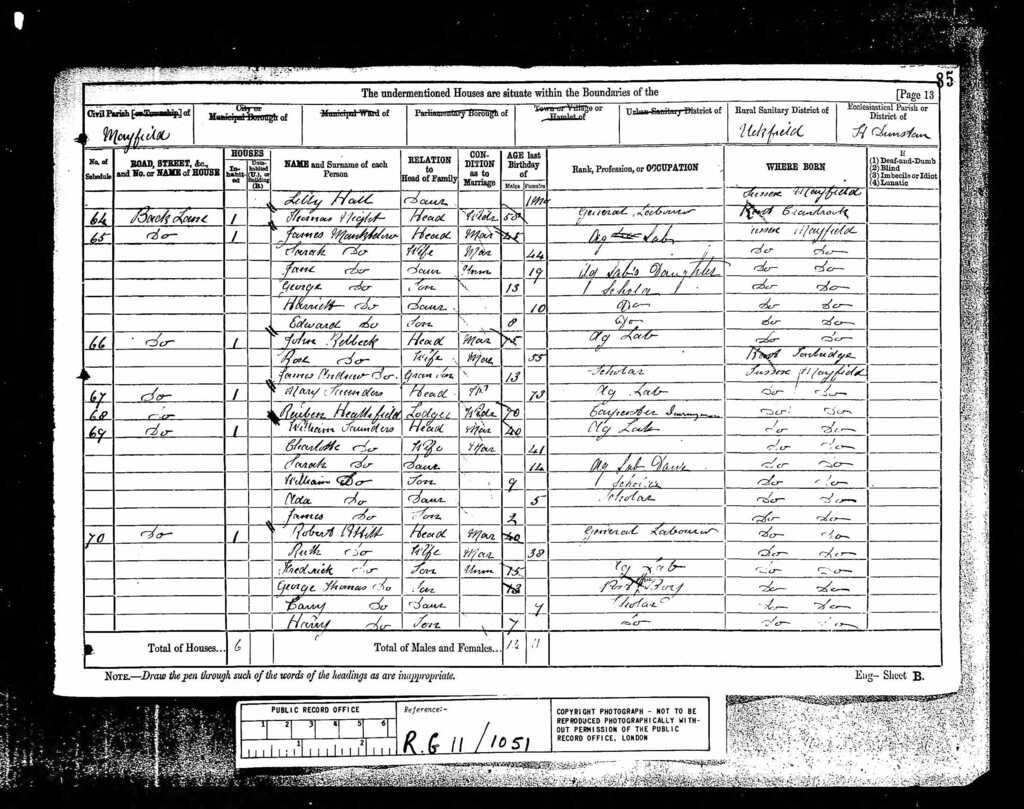 85
The undermentioned Houses are situate within the Boundaries of the
[Page 13
Civil Parish [or Township] of
City or Municipal Borough of
Municipal Ward of
Parliamentary Borough of
Town or Village or Hamlet of
Urban Sanitary District of
Rural Sanitary District of
Ecclesiastical Parish or District of
Mayfield Uckfield St Dunstan
No. of Schedule
ROAD, STREET, &c., and No. or NAME of HOUSE
HOUSES
In-habit-ed
Unin-habited (U.), or Building (B.)
NAME and Surname of each Person
RELATION to Head of Family
CON-DITION as to Marriage
AGE last Birthday of
Males Females
Rank, Profession, or OCCUPATION
WHERE BORN
If
(1) Deaf-and-Dumb
(2) Blind
(3) Imbecile or Idiot
(4) Lunatic
Lilly Hall Daur 1 Mo Sussex Mayfield
64 Back Lane 1 Thomas Head Widr General Labourer Kent
65 Do 1 James Head Mar 45 Ag Lab Sussex Mayfield
Sarah Do Wife Mar 44 Do Do
Jane Do Daur Unm 19 Ag Lab's Daughter Do Do
George Do Son 13 Scholar Do Do
Harriett Do Daur 10 Do Do Do
Edward Do Son 8 Do Do Do
66 Do 1 John Head Mar 75 Ag Lab Do Do
Rose Do Wife Mar 55 Kent
James Andrew Do Grandson 13 Scholar Sussex Mayfield
67 Do 1 Mary Saunders Head 73 Ag Lab Do Do
68 Do Reuben Lodger Widr 70 Carpenter Do Do
69 Do 1 William Saunders Head Mar 40 Ag Lab Do Do
Charlotte Do Wife Mar 41 Do Do
Sarah Do Daur 14 Ag Lab Daur Do Do
William Do Son 9 Scholar Do Do
Ada Do Daur 5 Scholar Do Do
James Do Son 2 Do Do
70 Do 1 Robert Head Mar 40 General Labourer Do Do
Ruth Do Wife Mar 38 Do Do
Fredrick Do Son Unm 15 Ag Lab Do Do
George Thomas Do Son 13 Boy Do Do
Do Daur 9 Scholar Do Do
Harry Do Son 7 Do Do Do
Total of Houses... 6 Total of Males and Females... 14 11
NOTE.—Draw the pen through such of the words of the headings as are inappropriate.
Eng- Sheet B.
PUBLIC RECORD OFFICE
1 2 3 4 5 6
1 2
Reference:-
R.G 11/1051
COPYRIGHT PHOTOGRAPH - NOT TO BE
REPRODUCED PHOTOGRAPHICALLY WITH-
OUT PERMISSION OF THE PUBLIC
RECORD OFFICE, LONDON